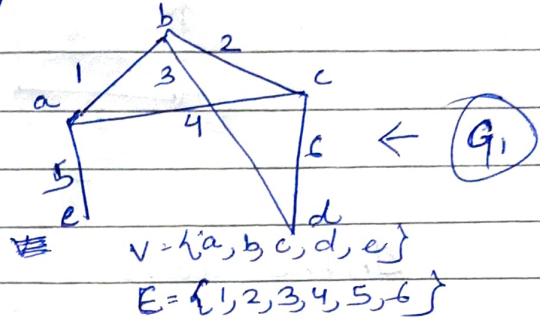 b
1
2
3
a
c
4
6
← G₁
5
e
d
V = {a, b, c, d, e}
E = {1, 2, 3, 4, 5, 6}